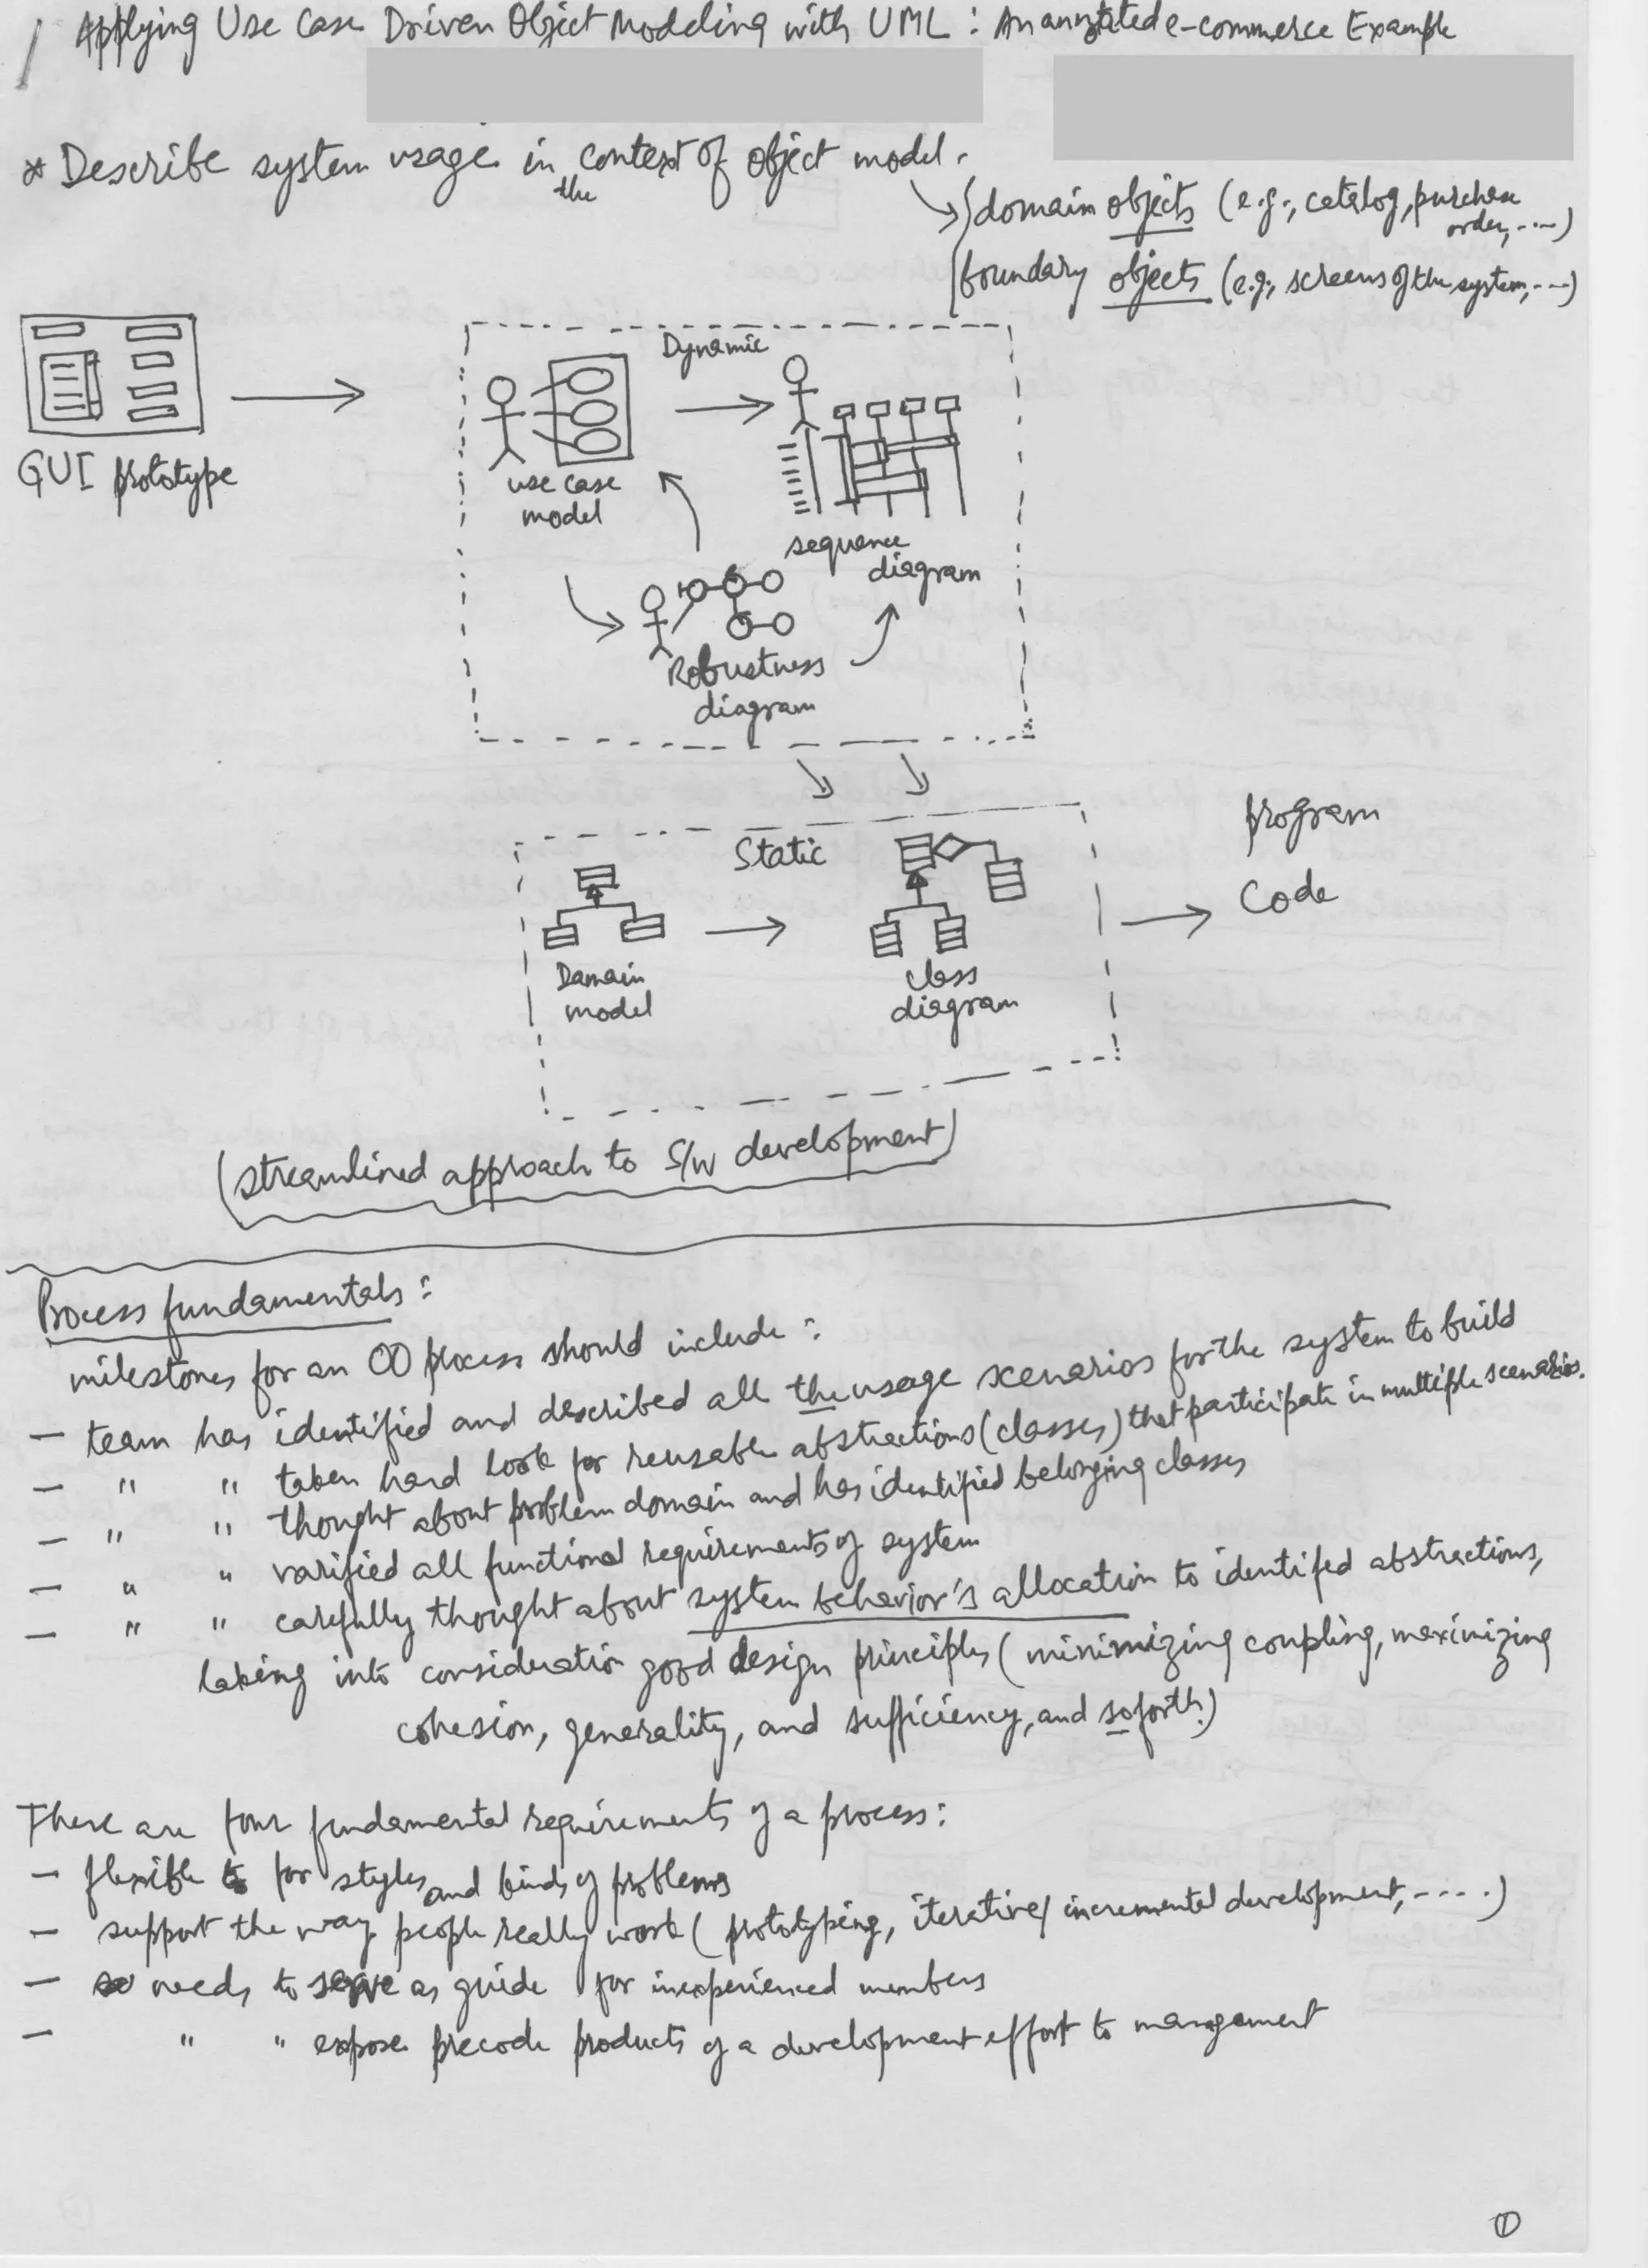 Applying Use Case Driven Object Modeling with UML : An annotated e-commerce Example
* Describe system usage in the context of object model.
domain objects (e.g., catalog, purchase order, ....)
boundary objects (e.g., screens of the system, ...)
Dynamic
GUI prototype
use case
model
sequence
diagram
Robustness
diagram
Static
program
Code
Domain
model
class
diagram
(streamlined approach to S/W development)
Process fundamentals :
milestones for an OO process should include :
— team has identified and described all the usage scenarios for the system to build
— " " taken hard look for reusable abstractions (classes) that participate in multiple scenarios.
— " " thought about problem domain and has identified belonging classes
— " " varified all functional requirements of system
— " " carefully thought about system behavior's allocation to identifed abstractions,
taking into consideration good design principles (minimizing coupling, maximizing
cohesion, generality, and sufficiency, and so forth.)
There are four fundamental requirements of a process:
— flexible for styles and kinds of problems
— support the way people really work ( prototyping, iterative/ incremental development, .....)
— needs to serve as guide for inexperienced members
— " " expose precode products of a development effort to management
1